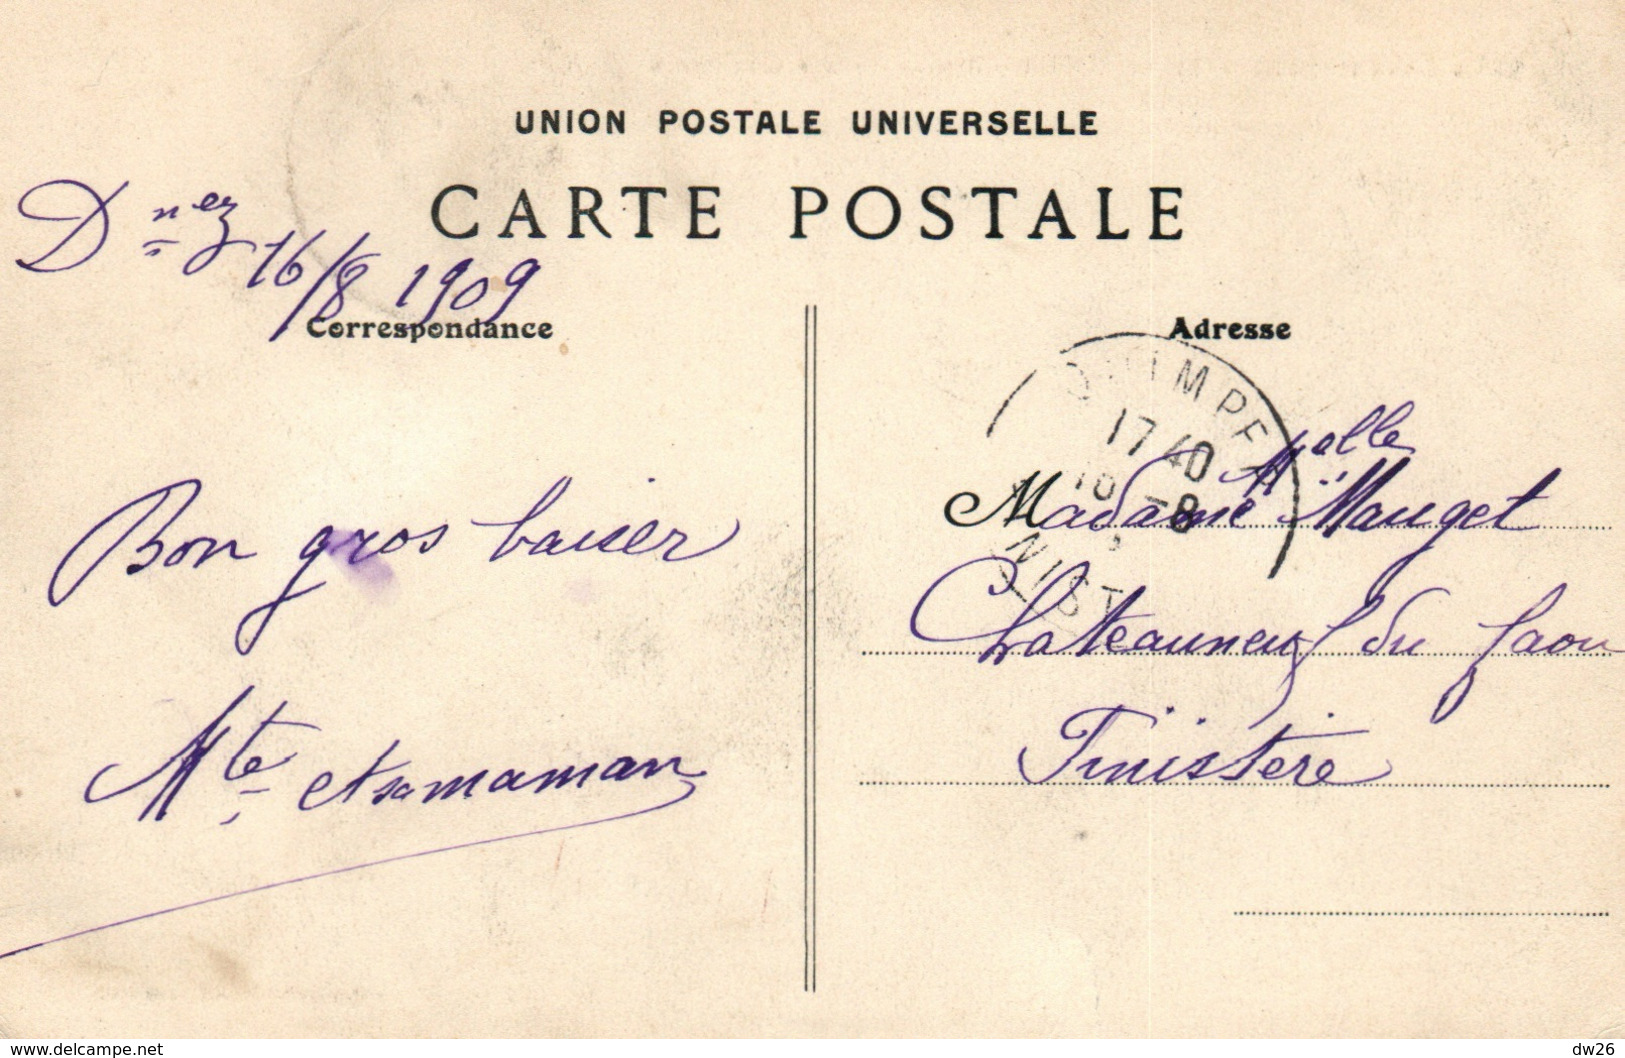 UNION POSTALE UNIVERSELLE
CARTE POSTALE
D nez 16/8 1909
Correspondance
Adresse
QUIMPER
17 40
16 -8
FINIST
Bon gros baiser
Mte et sa maman
Madame Mauget
Chateauneuf du faou
Finistère
www.delcampe.net
dw26